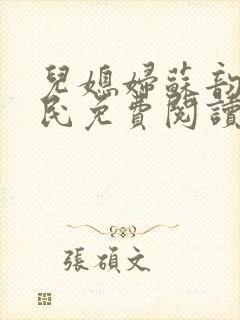 兒媳婦蘇韵
民免費閱讀
張碩文